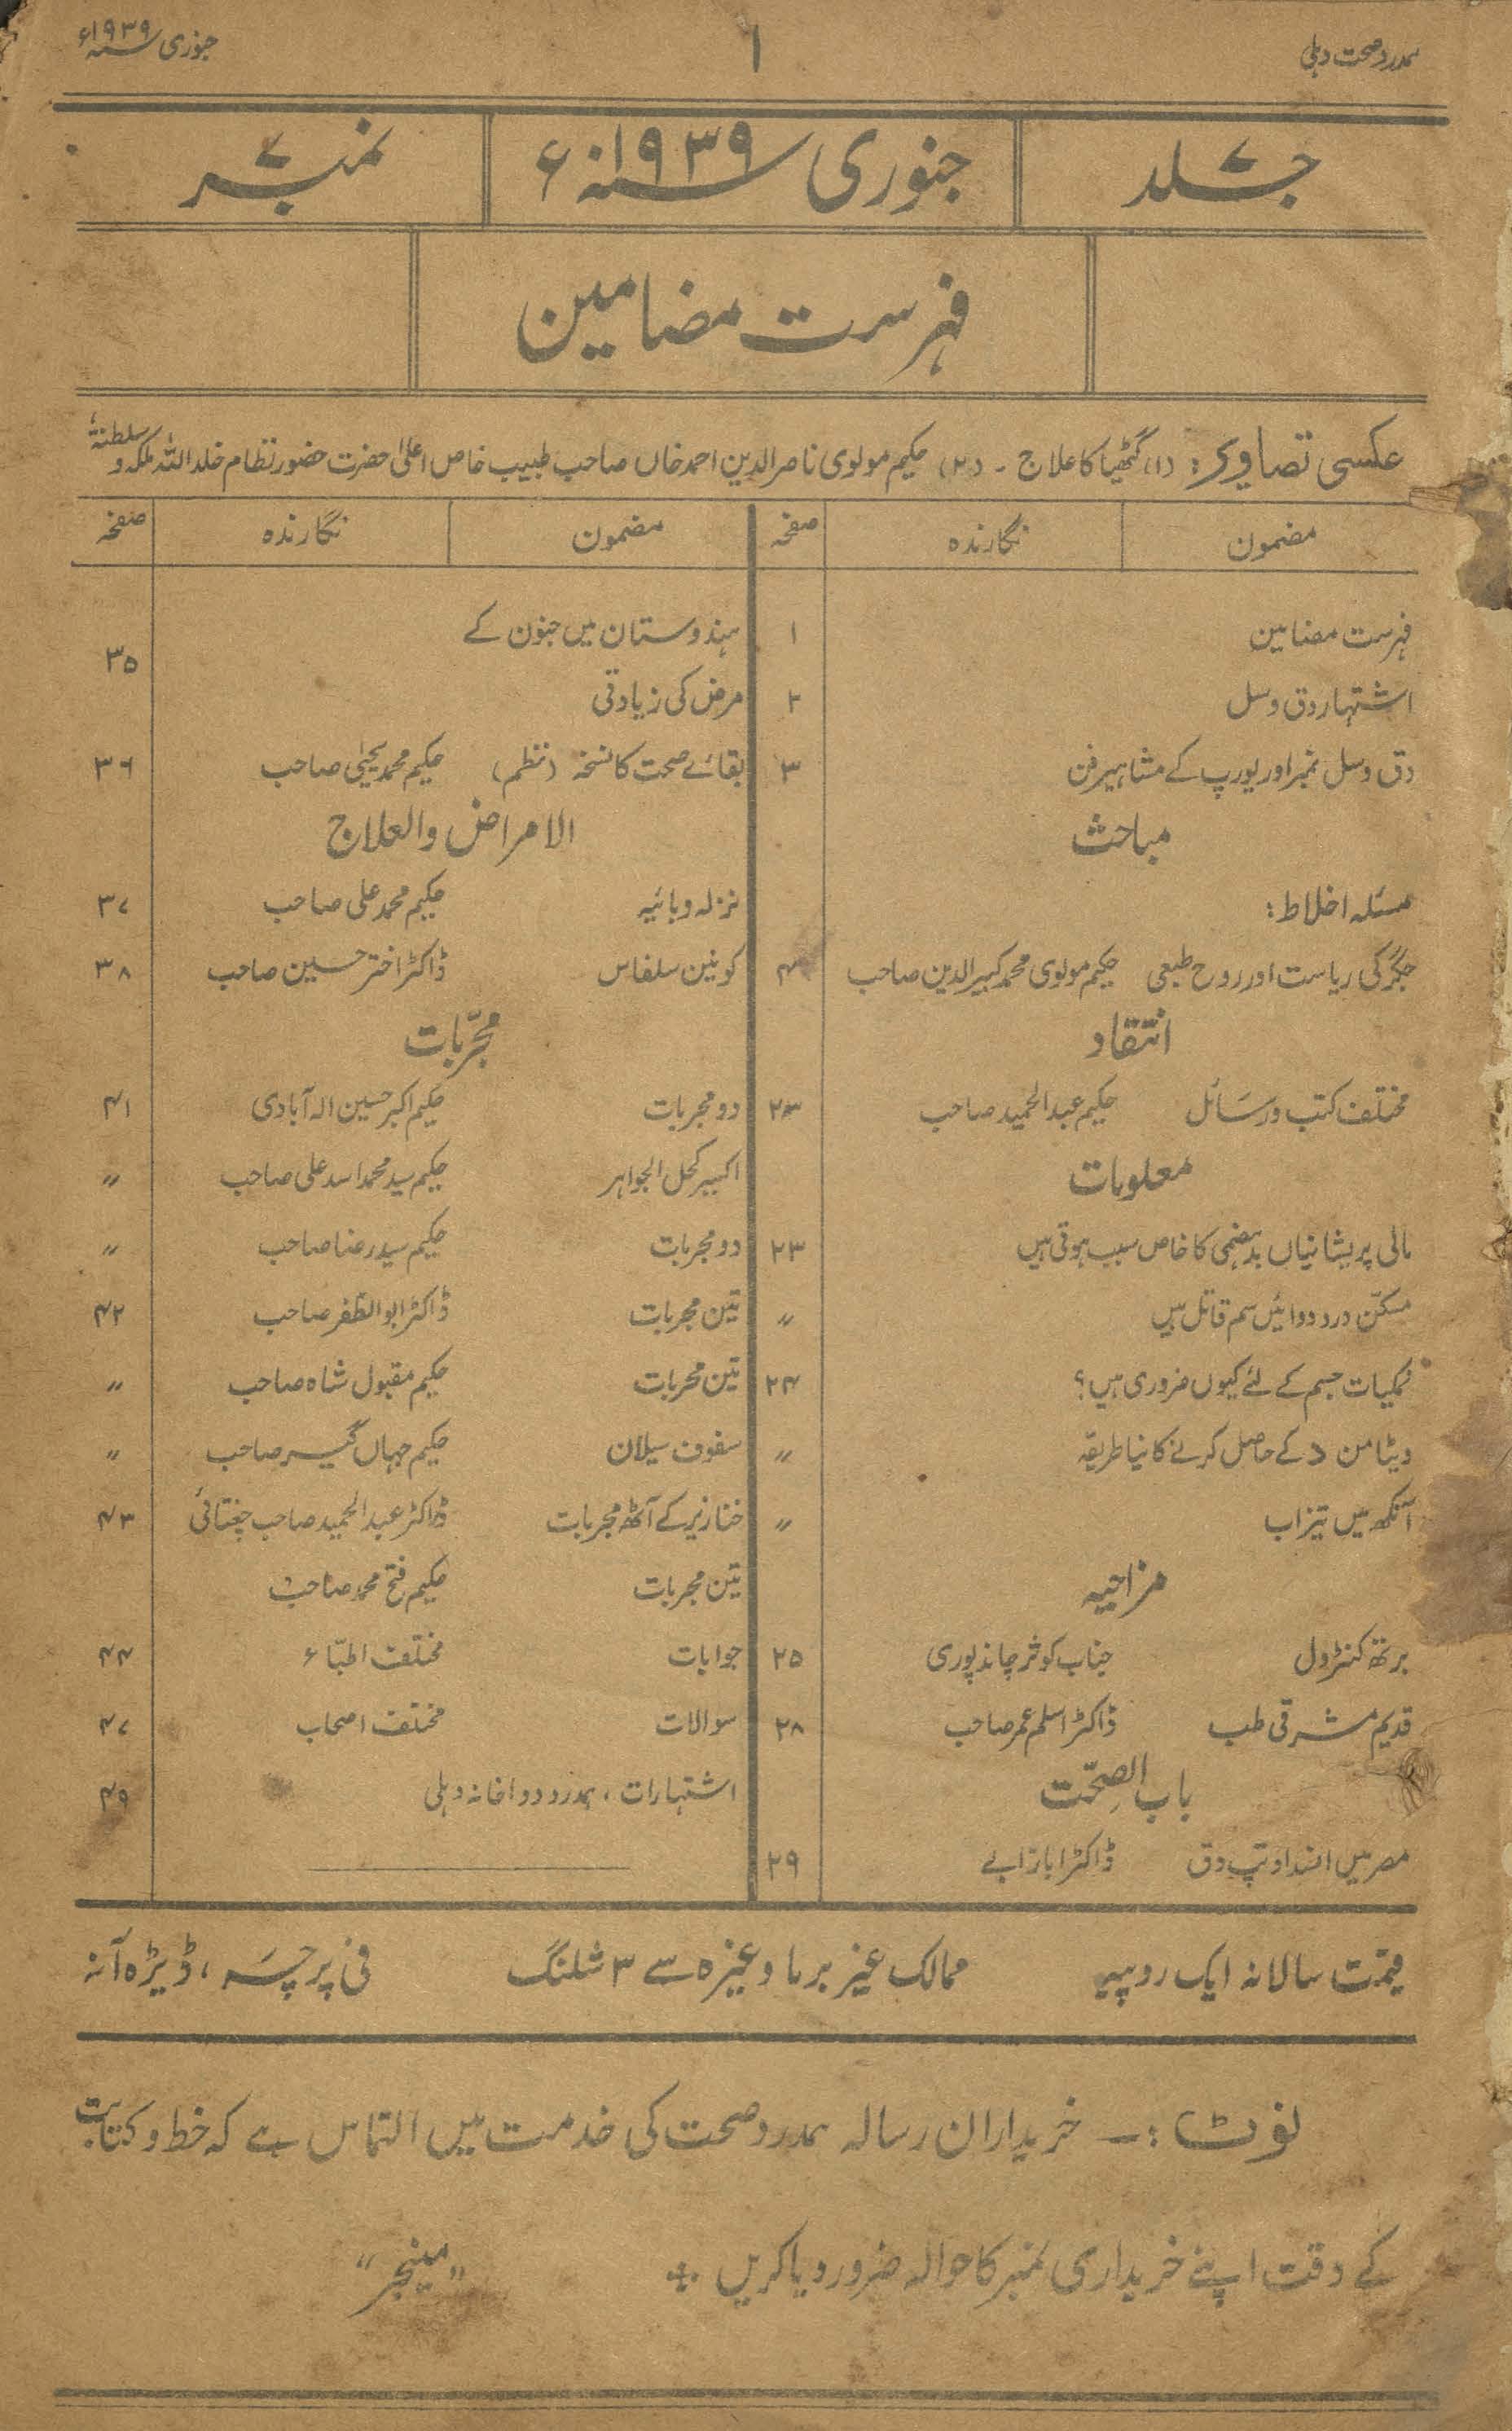 ہمدرد صحت دہلی
۱
جنوری ۱۹۳۹ء
جلد ۷
جنوری ۱۹۳۹ء
نمبر ۷
فہرست مضامین
عکسی تصاویر: (۱) گٹھیا کا علاج - (۲) حکیم مولوی ناصر الدین احمد خاں صاحب طبیب خاص اعلیٰ حضرت حضور نظام خلد اللہ ملکہ و سلطنتہ
مضمون نگارندہ صفحہ
فہرست مضامین ۱
اشتہار دق وسل ۲
دق وسل نمبر اور یورپ کے مشاہیر فن ۳
مباحث
مسئلہ اخلاط:
جگر کی ریاست اور روح طبعی حکیم مولوی محمد کبیر الدین صاحب ۴
انتقاد
مختلف کتب و رسائل حکیم عبد الحمید صاحب ۲۳
معلومات
مالی پریشانیاں بدہضمی کا خاص سبب ہوتی ہیں ۲۳
مسکّن درد دوائیں سم قاتل ہیں 〃
نمکیات جسم کے لئے کیوں ضروری ہیں؟ ۲۴
ویٹامن د کے حاصل کرنے کا نیا طریقہ 〃
آنکھ میں تیزاب 〃
مزاحیہ
برتھ کنٹرول جناب کوثر چاندپوری ۲۵
قدیم مشرقی طب ڈاکٹر اسلم عمر صاحب ۲۸
باب الصحّت
مصر میں انسداد تپ دق ڈاکٹر اباز ابے ۲۹
مضمون نگارندہ صفحہ
ہندوستان میں جنون کے
مرض کی زیادتی ۳۵
بقائے صحت کا نسخہ (نظم) حکیم محمد یحییٰ صاحب ۳۶
الامراض والعلاج
نزلہ وبائیہ حکیم محمد علی صاحب ۳۷
کونین سلفاس ڈاکٹر اختر حسین صاحب ۳۸
مجرّبات
دو مجربات حکیم اکبر حسین الہ آبادی ۴۱
اکسیر کحل الجواہر حکیم سید محمد اسد علی صاحب 〃
دو مجربات حکیم سید رضا صاحب 〃
تین مجربات ڈاکٹر ابو الظفر صاحب ۴۲
تین مجربات حکیم مقبول شاہ صاحب 〃
سفوف سیلان حکیم جہاں گیر صاحب 〃
خنازیر کے آٹھ مجربات ڈاکٹر عبد الحمید صاحب چغتائی ۴۳
تین مجربات حکیم فتح محمد صاحب
جوابات مختلف اطبّاء ۴۴
سوالات مختلف اصحاب ۴۷
اشتہارات، ہمدرد دواخانہ دہلی ۴۹
قیمت سالانہ ایک روپیہ ممالک غیر برما وغیرہ سے ۳ شلنگ فی پرچہ، ڈیڑہ آنہ
نوٹ:۔ خریداران رسالہ ہمدرد صحت کی خدمت میں التماس ہے کہ خط و کتابت
کے وقت اپنے خریداری نمبر کا حوالہ ضرور دیا کریں ؞ "مینجر"